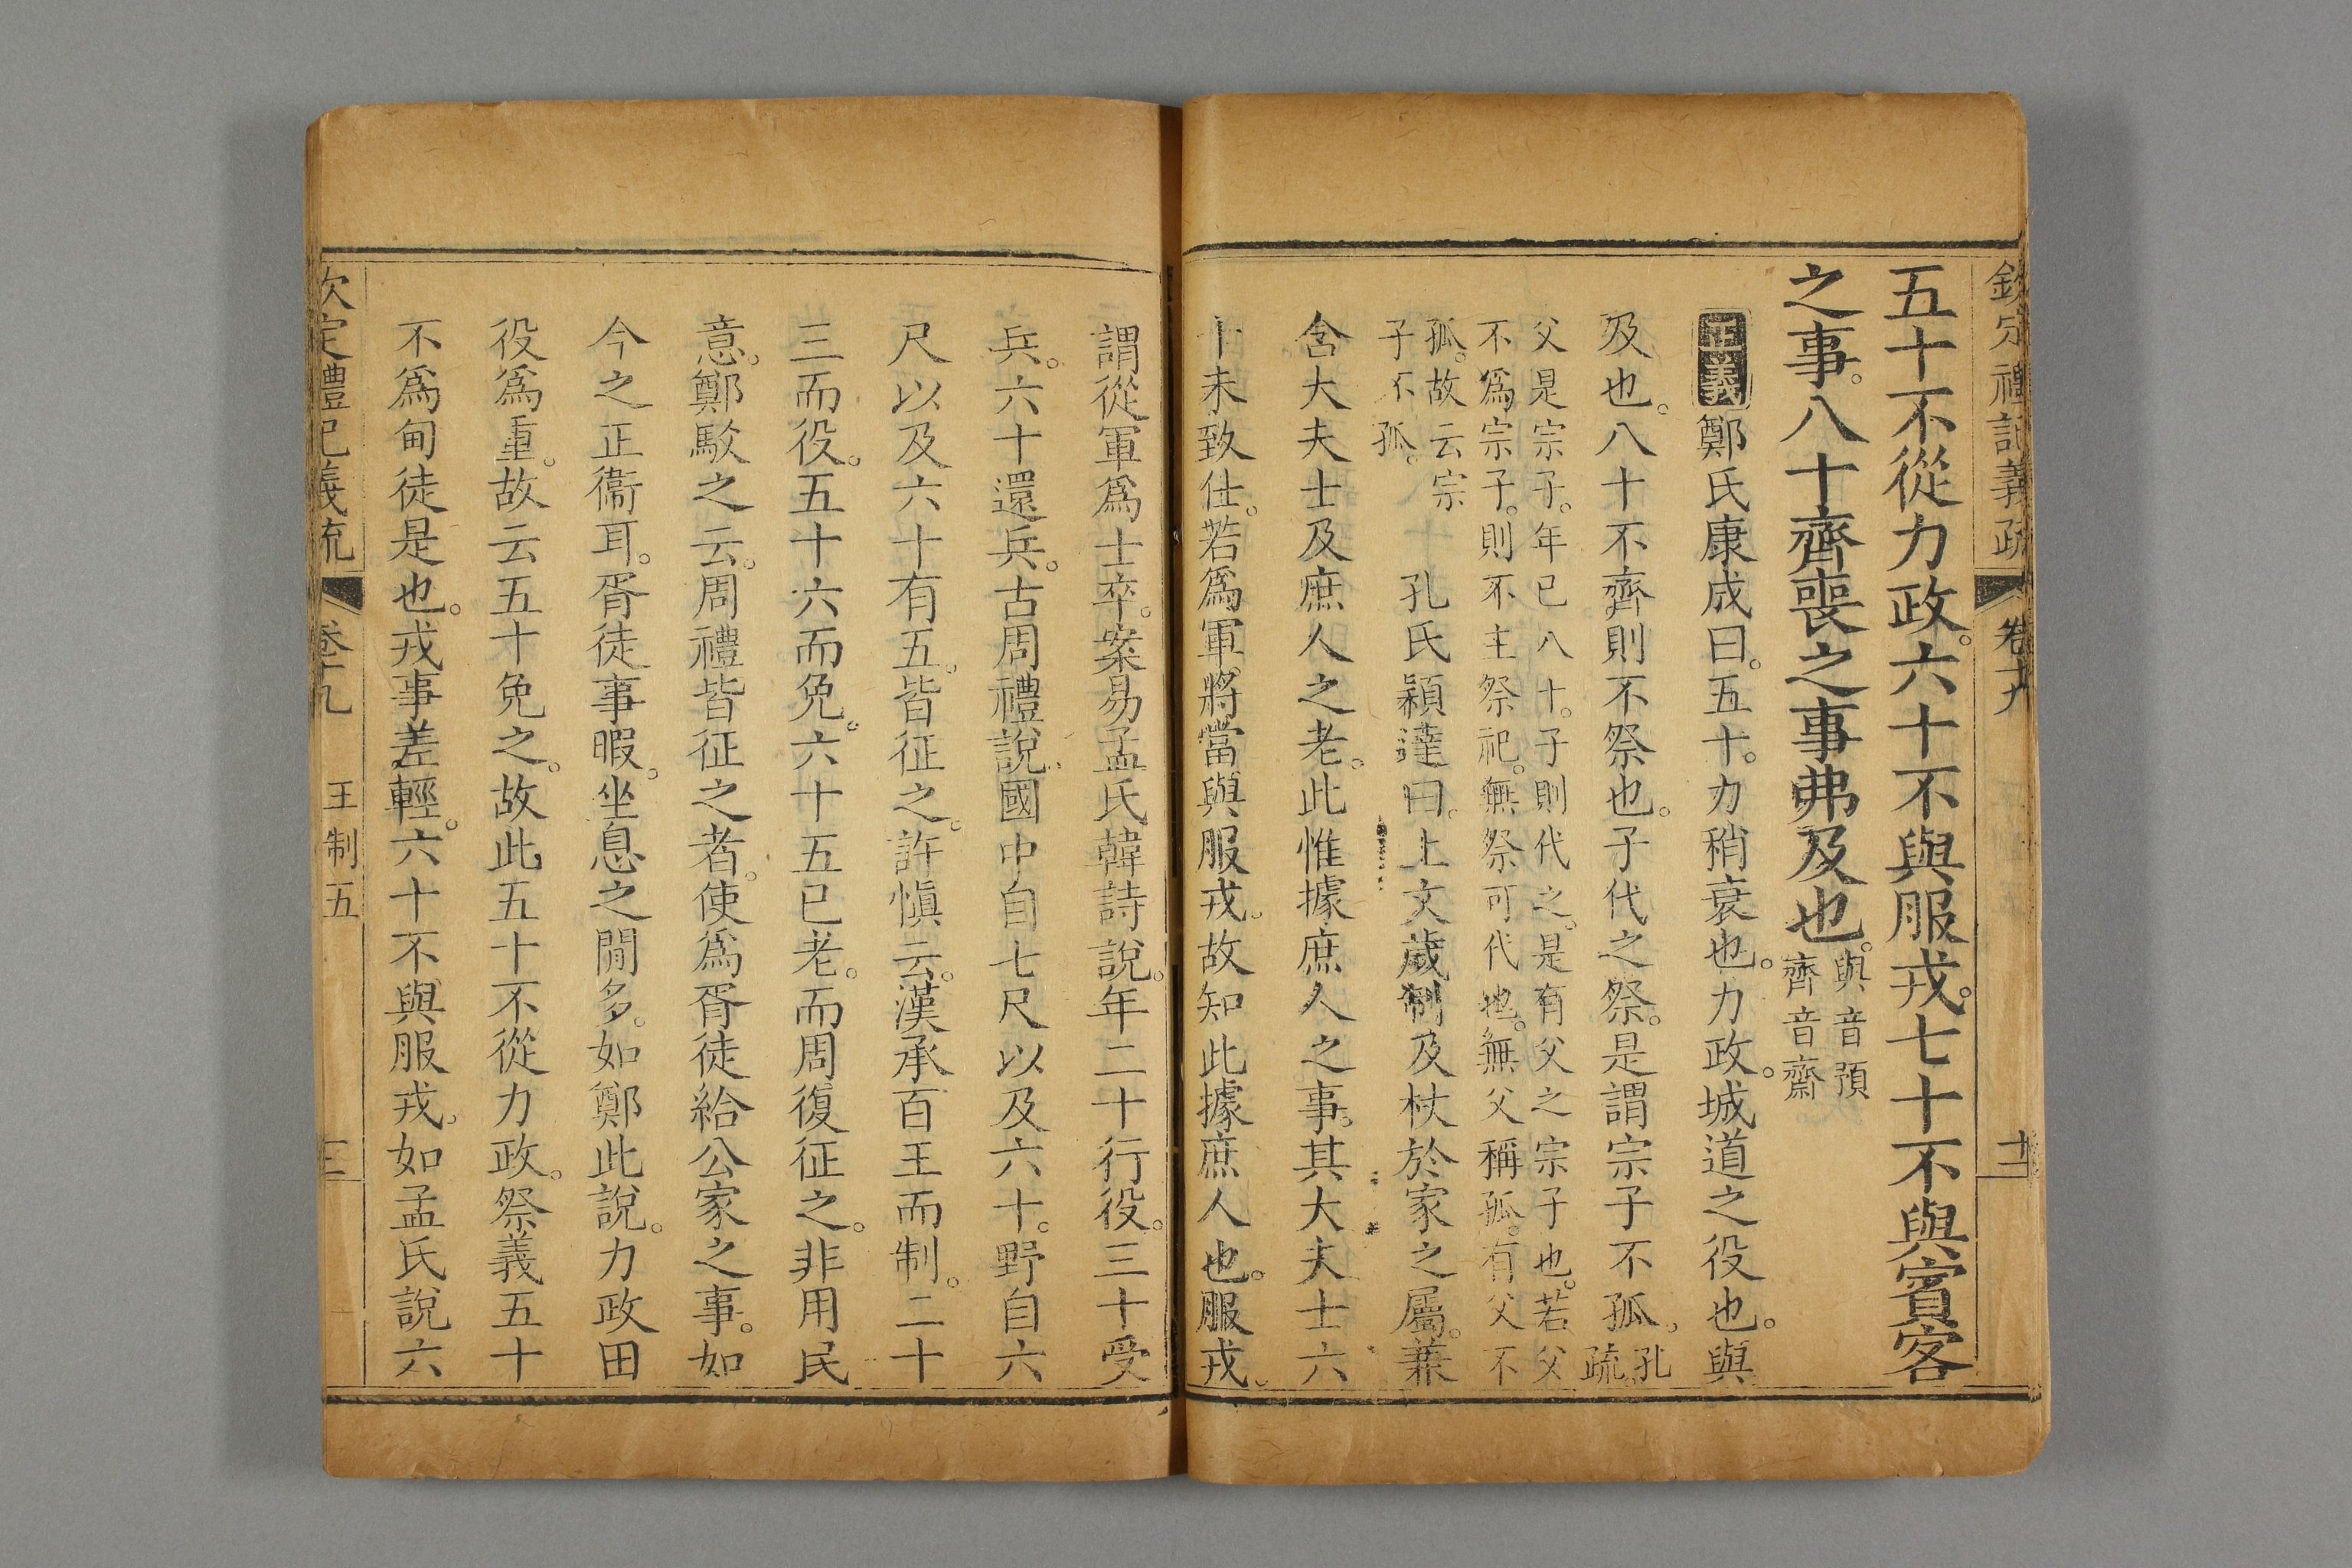 欽定禮記義疏 卷十九 十二
五十不從力政。六十不與服戎。七十不與賓客
之事。八十齊喪之事弗及也。與音預
齊音齋
正義鄭氏康成曰。五十。力稍衰也。力政。城道之役也。與
及也。八十不齊則不祭也。子代之祭。是謂宗子不孤。孔
疏
父是宗子。年已八十。子則代之。是有父之宗子也。若父
不為宗子。則不主祭祀。無祭可代也。無父稱孤。有父不
孤。故云宗
子不孤。
孔氏穎達曰。上文歲制及杖於家之屬。蒹
含大夫士及庶人之老。此惟據庶人之事。其大夫士六
十未致仕。若為軍將當與服戎。故知此據庶人也。服戎。
謂從軍為士卒。案易孟氏韓詩說。年二十行役。三十受
兵。六十還兵。古周禮說。國中自七尺以及六十。野自六
尺以及六十有五。皆征之。許慎云。漢承百王而制。二十
三而役。五十六而免。六十五已老。而周復征之。非用民
意。鄭駮之云。周禮皆征之者。使為胥徒給公家之事。如
今之正衞耳。胥徒事暇。坐息之閒多。如鄭此說。力政田
役為重。故云五十免之。故此五十不從力政。祭義五十
不為甸徒是也。戎事差輕。六十不與服戎。如孟氏說六
欠定禮記義疏 卷十九 王制五